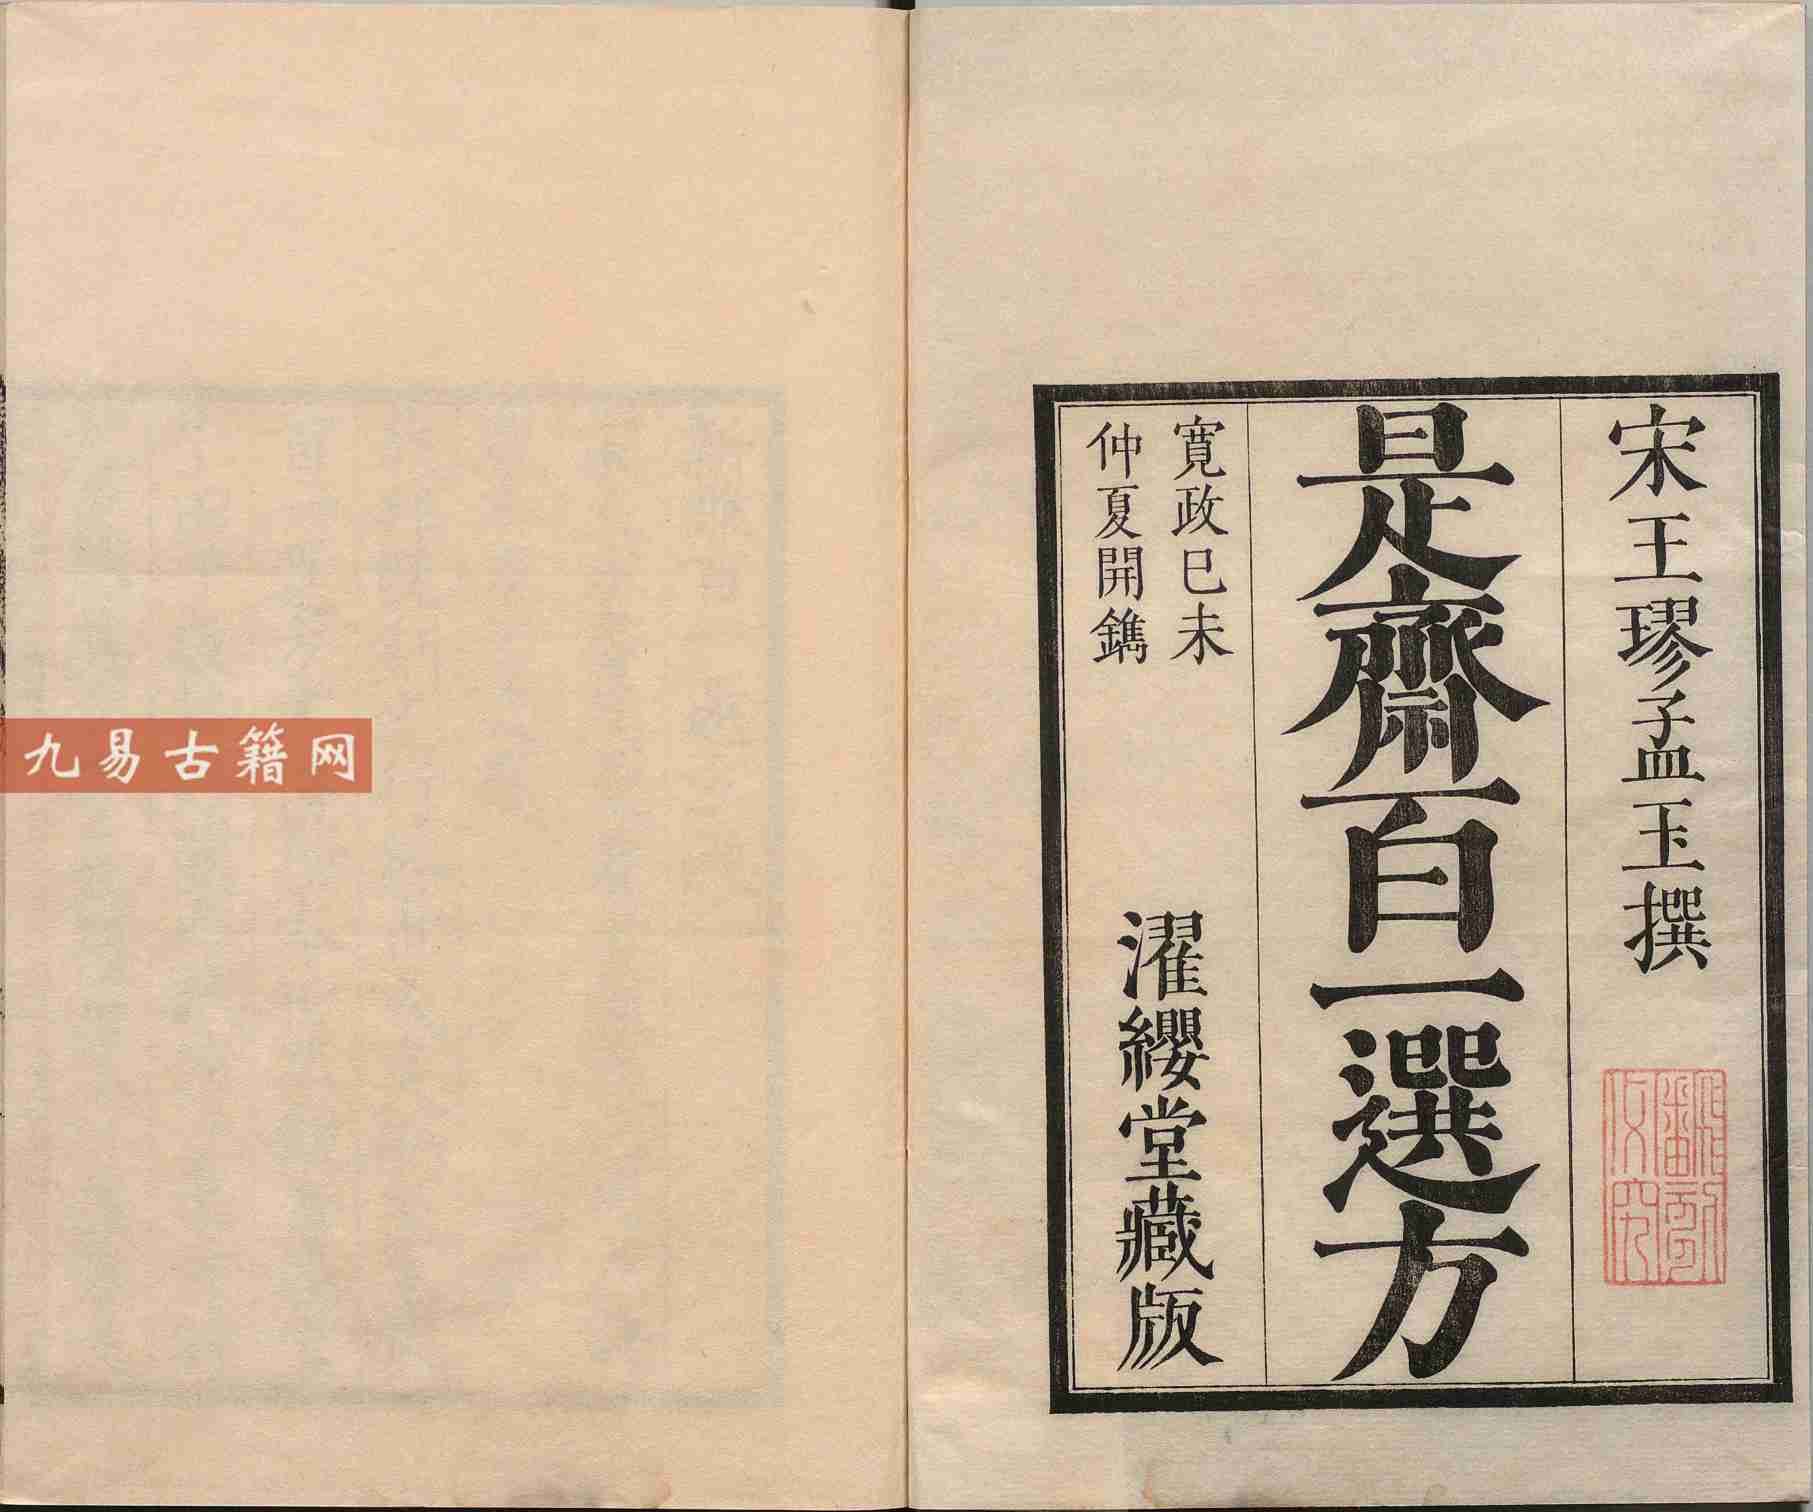 宋王璆孟玉撰
是齋百一選方
寬政巳未
仲夏開鐫
濯纓堂藏版
九易古籍网